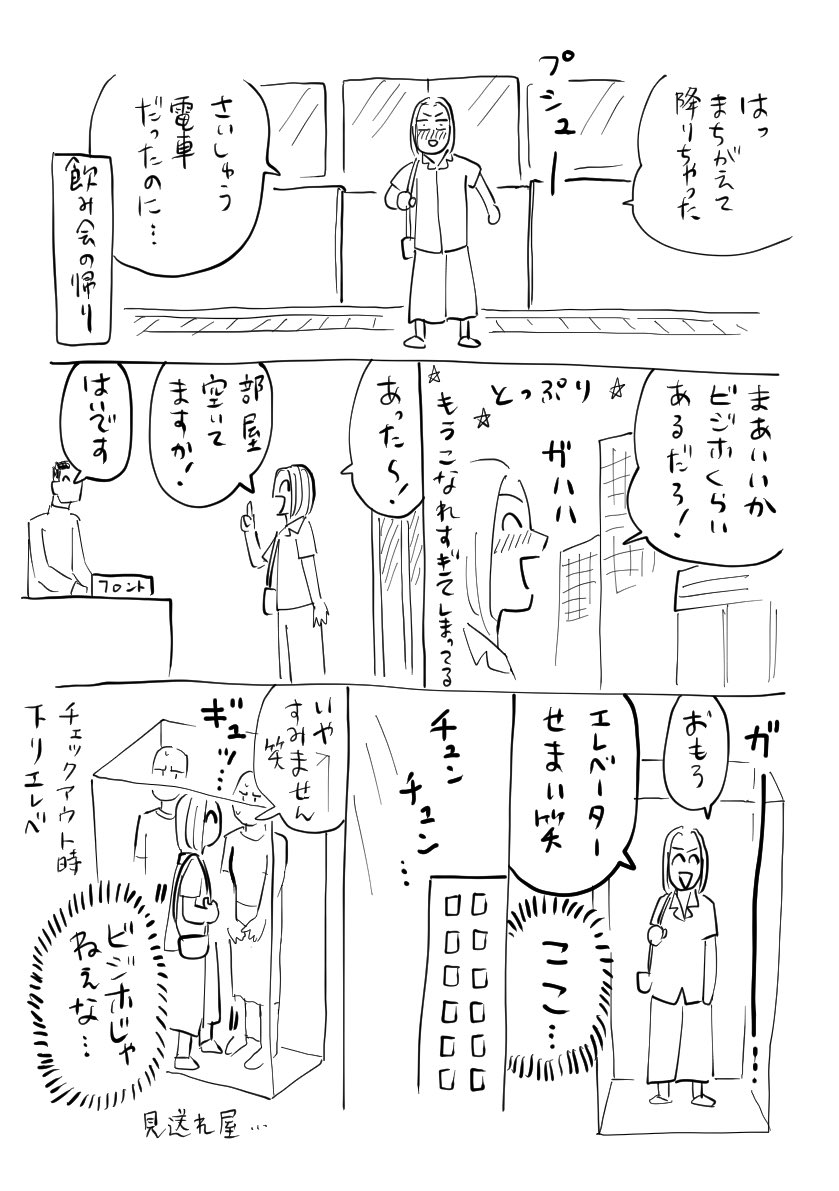 はっ
まちがえて
降りちゃった
プシューー
さいしゅう
電車
だったのに…
飲み会の帰り
まあいいか
ビジホくらい
あるだろ!
☆とっぷり☆
ガハハ
☆もうこなれすぎてしまってる
あったら〜!
部屋
空いて
ますか!
はいです
フロント
ガーー…
おもろ
エレベーター
せまい笑
ここ…
チュン
チュン…
いや
すみません
笑
ギュッ…
チェックアウト時
下りエレベ
ビジホじゃ
ねぇな…
見送れ屋…